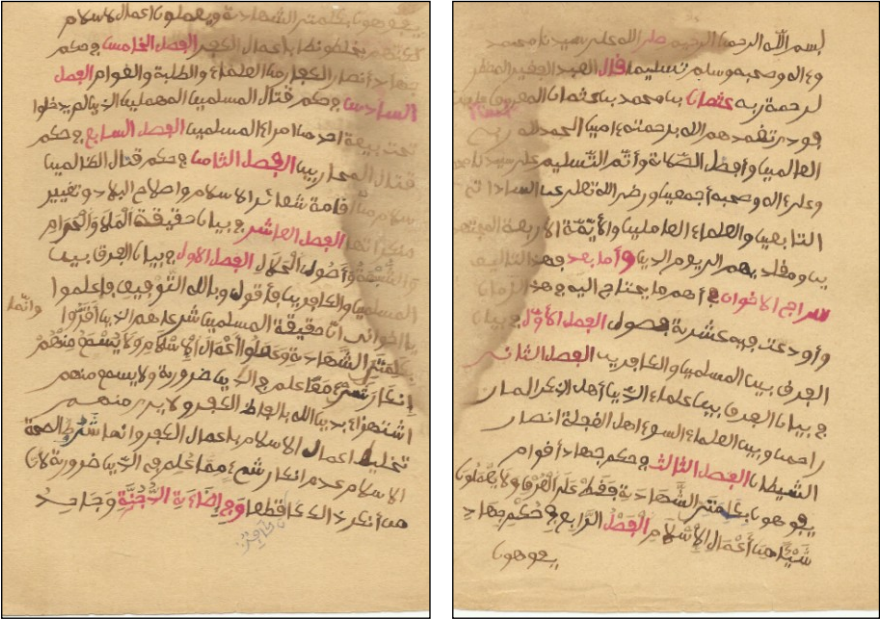 بسم الله الرحمن الرحيم صلى الله على سيدنا محمد
وءاله وصحبه وسلم تسليما قال العبد الفقير المضطر
لرحمة ربه عثمان بن محمد بن عثمان المعروف بابن
فودي تغمدهم الله برحمته ءامين الحمد لله رب
العالمين وأفضل الصلاة وأتم التسليم على سيدنا محمد
وعلى ءاله وصحبه أجمعين ورضي الله تعلى عن السادات
التابعين والعلماء العاملين والأيمة الاربعة المجتهد
ين ومقلديهم الى يوم الدين وأما بعد فهذا الكتاب
سراج الاخوان في أهم ما يحتاج اليه في هذا الزمان
وأودعت فيه عشرة فصول الفصل الأول في بيان
الفرق بين المسلمين والكافرين الفصل الثاني
في بيان الفرق بين علماء الدين أهل الذكر الصا
راحمن وبين العلماء السوء اهل الغفلة انصار
الشيطان الفصل الثالث في حكم جهاد أقوام
يفوهون بكلمتي الشهادة فقط على الفرق ولا يعملون
شيئا من أعمال الإسلام الفصل الرابع في حكم جهاد
يفوهون
يفوهون بكلمتي الشهادة ويعملون اعمال الاسلام
لكنهم يخلطونها باعمال الكفر الفصل الخامس في حكم
جهاد أنصار الكفار من العلماء والطلبة والعوام الفصل
السادس في حكم قتال المسلمين المهملين الذين لم يدخلوا
تحت بيعة احد من امراء المسلمين الفصل السابع في حكم
قتال المحاربين الفصل الثامن في حكم قتال الظالمين
اقامة شعائر الاسلام واصلاح البلاد وتغيير
منكراتها الفصل العاشر في بيان حقيقة المال والحرام
والشبهة وأصول الحلال الفصل الاول في بيان الفرق بين
المسلمين والكافرين فأقول وبالله التوفيق فاعلموا
يا اخواني أن حقيقة المسلمين شرعا هم الذين أقروا وانما
بكلمتي الشهادة وعملوا أعمال الإسلام ولا يسمع منهم
إنكار شيء مما علم في الدين ضرورة ولا يسمع منهم
اشتهزاء بدين الله بالفاظ الكفر ولا يرى منهم
تخليط اعمال الاسلام باعمال الكفر وانما شرط لصحة
الاسلام عدم انكار شيء مما علم في الدين ضرورة لان
من أنكر ذلك كافر قطعا وفي إضاءة الدجنة وجاحد